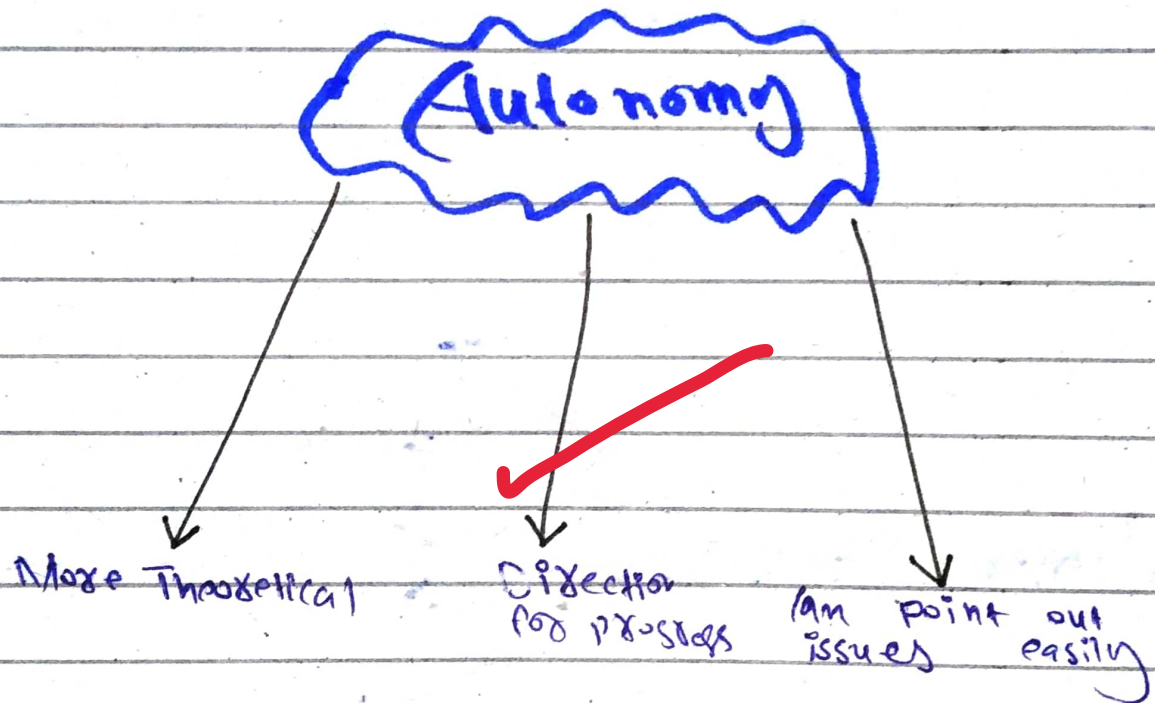 Autonomy
More Theoretical
Direction
for progress
Can point out
issues easily